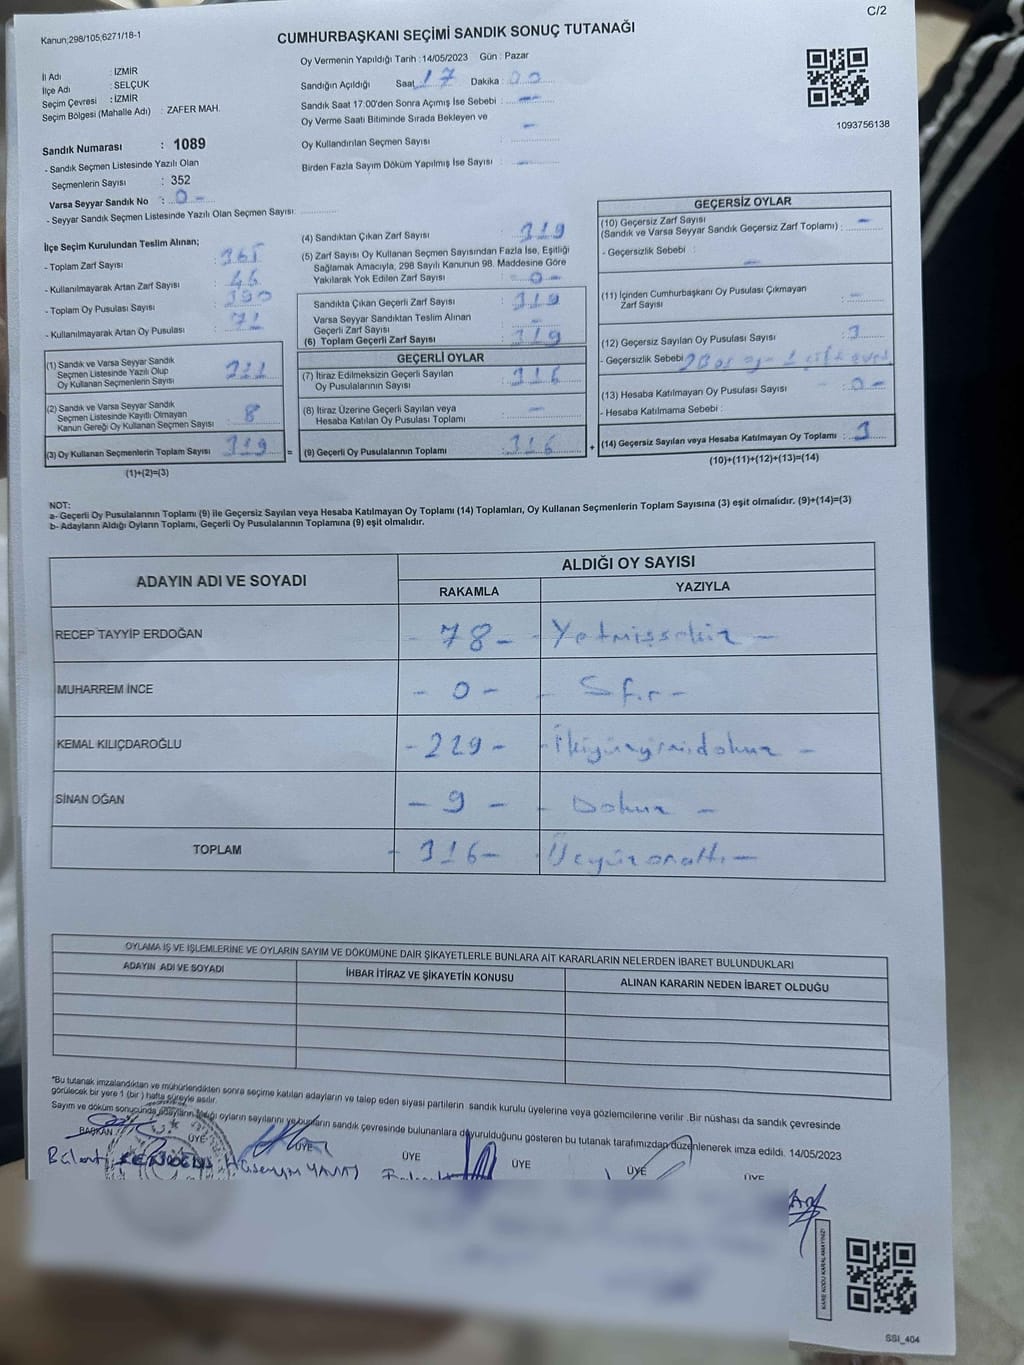 C/2
Kanun;298/105,6271/18-1
CUMHURBAŞKANI SEÇİMİ SANDIK SONUÇ TUTANAĞI
Oy Vermenin Yapıldığı Tarih :14/05/2023 Gün : Pazar
İl Adı : İZMİR
İlçe Adı : SELÇUK
Seçim Çevresi : İZMİR
Seçim Bölgesi (Mahalle Adı) : ZAFER MAH.
Sandığın Açıldığı Saat 17 Dakika : 00
Sandık Saat 17:00'den Sonra Açımış İse Sebebi : -
Oy Verme Saati Bitiminde Sırada Bekleyen ve
Oy Kullandırılan Seçmen Sayısı : -
Birden Fazla Sayım Döküm Yapılmış İse Sayısı : -
1093756138
Sandık Numarası : 1089
- Sandık Seçmen Listesinde Yazılı Olan
Seçmenlerin Sayısı : 352
Varsa Seyyar Sandık No : 0 -
- Seyyar Sandık Seçmen Listesinde Yazılı Olan Seçmen Sayısı:
İlçe Seçim Kurulundan Teslim Alınan;
- Toplam Zarf Sayısı : 365
- Kullanılmayarak Artan Zarf Sayısı : 46
- Toplam Oy Pusulası Sayısı : 390
- Kullanılmayarak Artan Oy Pusulası : 71
(1) Sandık ve Varsa Seyyar Sandık
Seçmen Listesinde Yazılı Olup
Oy Kullanan Seçmenlerin Sayısı : 311
(2) Sandık ve Varsa Seyyar Sandık
Seçmen Listesinde Kayıtlı Olmayan
Kanun Gereği Oy Kullanan Seçmen Sayısı : 8
(3) Oy Kullanan Seçmenlerin Toplam Sayısı : 319 =
(1)+(2)=(3)
(4) Sandıktan Çıkan Zarf Sayısı : 319
(5) Zarf Sayısı Oy Kullanan Seçmen Sayısından Fazla İse, Eşitliği
Sağlamak Amacıyla, 298 Sayılı Kanunun 98. Maddesine Göre
Yakılarak Yok Edilen Zarf Sayısı : -0-
Sandıkta Çıkan Geçerli Zarf Sayısı : 319
Varsa Seyyar Sandıktan Teslim Alınan
Geçerli Zarf Sayısı : -
(6) Toplam Geçerli Zarf Sayısı : 319
GEÇERLİ OYLAR
(7) İtiraz Edilmeksizin Geçerli Sayılan
Oy Pusulalarının Sayısı : 316
(8) İtiraz Üzerine Geçerli Sayılan veya
Hesaba Katılan Oy Pusulası Toplamı : -
(9) Geçerli Oy Pusulalarının Toplamı : 316 +
GEÇERSİZ OYLAR
(10) Geçersiz Zarf Sayısı
(Sandık ve Varsa Seyyar Sandık Geçersiz Zarf Toplamı) : -
- Geçersizlik Sebebi : -
(11) İçinden Cumhurbaşkanı Oy Pusulası Çıkmayan
Zarf Sayısı : -
(12) Geçersiz Sayılan Oy Pusulası Sayısı : 3
- Geçersizlik Sebebi : 2 Boş oy - 1 çift
(13) Hesaba Katılmayan Oy Pusulası Sayısı : 0 -
- Hesaba Katılmama Sebebi :
(14) Geçersiz Sayılan veya Hesaba Katılmayan Oy Toplamı : 3
(10)+(11)+(12)+(13)=(14)
NOT:
a- Geçerli Oy Pusulalarının Toplamı (9) ile Geçersiz Sayılan veya Hesaba Katılmayan Oy Toplamı (14) Toplamları, Oy Kullanan Seçmenlerin Toplam Sayısına (3) eşit olmalıdır. (9)+(14)=(3)
b- Adayların Aldığı Oyların Toplamı, Geçerli Oy Pusulalarının Toplamına (9) eşit olmalıdır.
ADAYIN ADI VE SOYADI ALDIĞI OY SAYISI
RAKAMLA YAZIYLA
RECEP TAYYİP ERDOĞAN - 78 - - Yetmişsekiz -
MUHARREM İNCE - 0 - - Sıfır -
KEMAL KILIÇDAROĞLU - 229 - - İkiyüzyirmidokuz -
SİNAN OĞAN - 9 - - Dokuz -
TOPLAM - 316 - - Üçyüzonaltı -
OYLAMA İŞ VE İŞLEMLERİNE VE OYLARIN SAYIM VE DÖKÜMÜNE DAİR ŞİKAYETLERLE BUNLARA AİT KARARLARIN NELERDEN İBARET BULUNDUKLARI
ADAYIN ADI VE SOYADI İHBAR İTİRAZ VE ŞİKAYETİN KONUSU ALINAN KARARIN NEDEN İBARET OLDUĞU
*Bu tutanak imzalandıktan ve mühürlendikten sonra seçime katılan adayların ve talep eden siyasi partilerin sandık kurulu üyelerine veya gözlemcilerine verilir .Bir nüshası da sandık çevresinde
görülecek bir yere 1 (bir ) hafta süreyle asılır.
Sayım ve döküm sonucunda adayların aldığı oyların sayılarını ve bunların sandık çevresinde bulunanlara duyurulduğunu gösteren bu tutanak tarafımızdan düzenlenerek imza edildi. 14/05/2023
BAŞKAN ÜYE ÜYE ÜYE ÜYE ÜYE ÜYE
Bülent Hüseyin YAVAŞ
KARE KODU KARALAMAYINIZ!
SSI_404